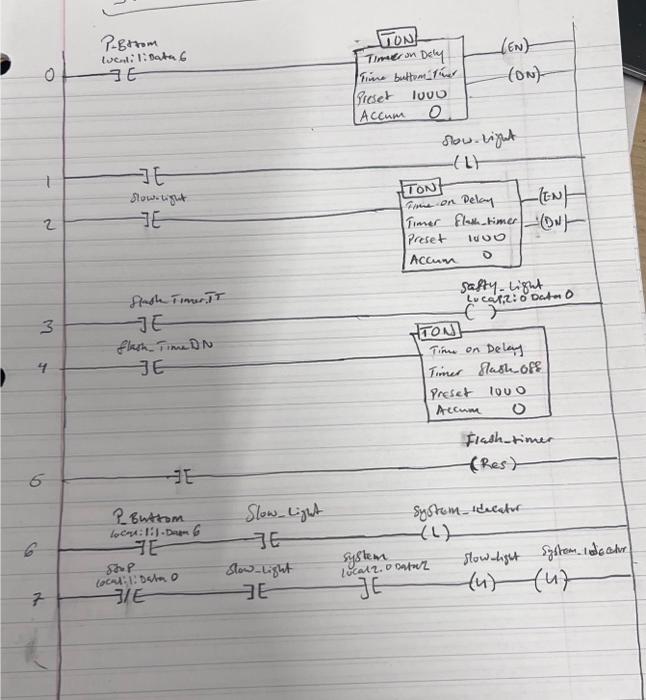 P_Bottom
local:1:Data 6
0
] [
TON
Timer on Dely
Time buttom_timer
Preset 1000
Accum 0
(EN)
(DN)
1
] [
Slow_Light
(L)
2
Slow_Light
] [
TON
Time on Delay
Timer Flash_timer
Preset 1000
Accum 0
(EN)
(DN)
3
flash Timer.TT
] [
Safty_Light
Local:2:0 Data 0
( )
4
flash_Time DN
] [
TON
Time on Delay
Timer flash_off
Preset 1000
Accum 0
5
] [
Flash_timer
(Res)
6
P_Button
local:1:1.Data 6
] [
Slow_Light
] [
System_Idecator
(L)
7
Stop
local:1:Data 0
]/[
Slow_Light
] [
System
local 2.0 Data 2
] [
Slow_light
(U)
System_Indecator
(U)